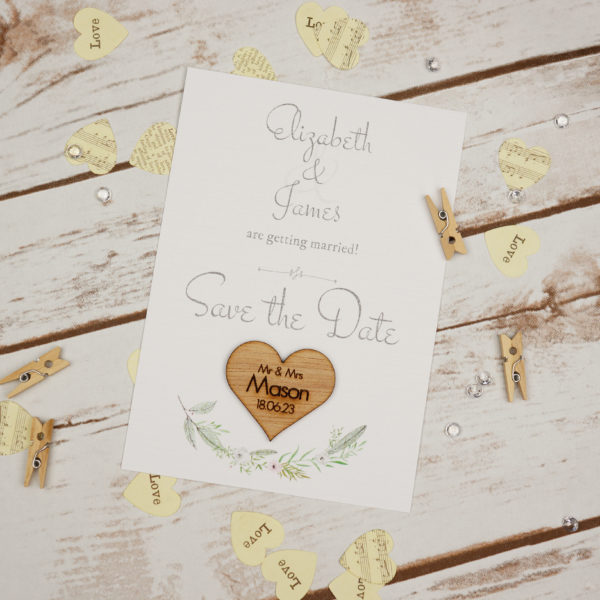 Elizabeth
&
James
are getting married!
Save the Date
Mr & Mrs
Mason
18.06.23
Love
L
Love
Love
Love
Love
Love